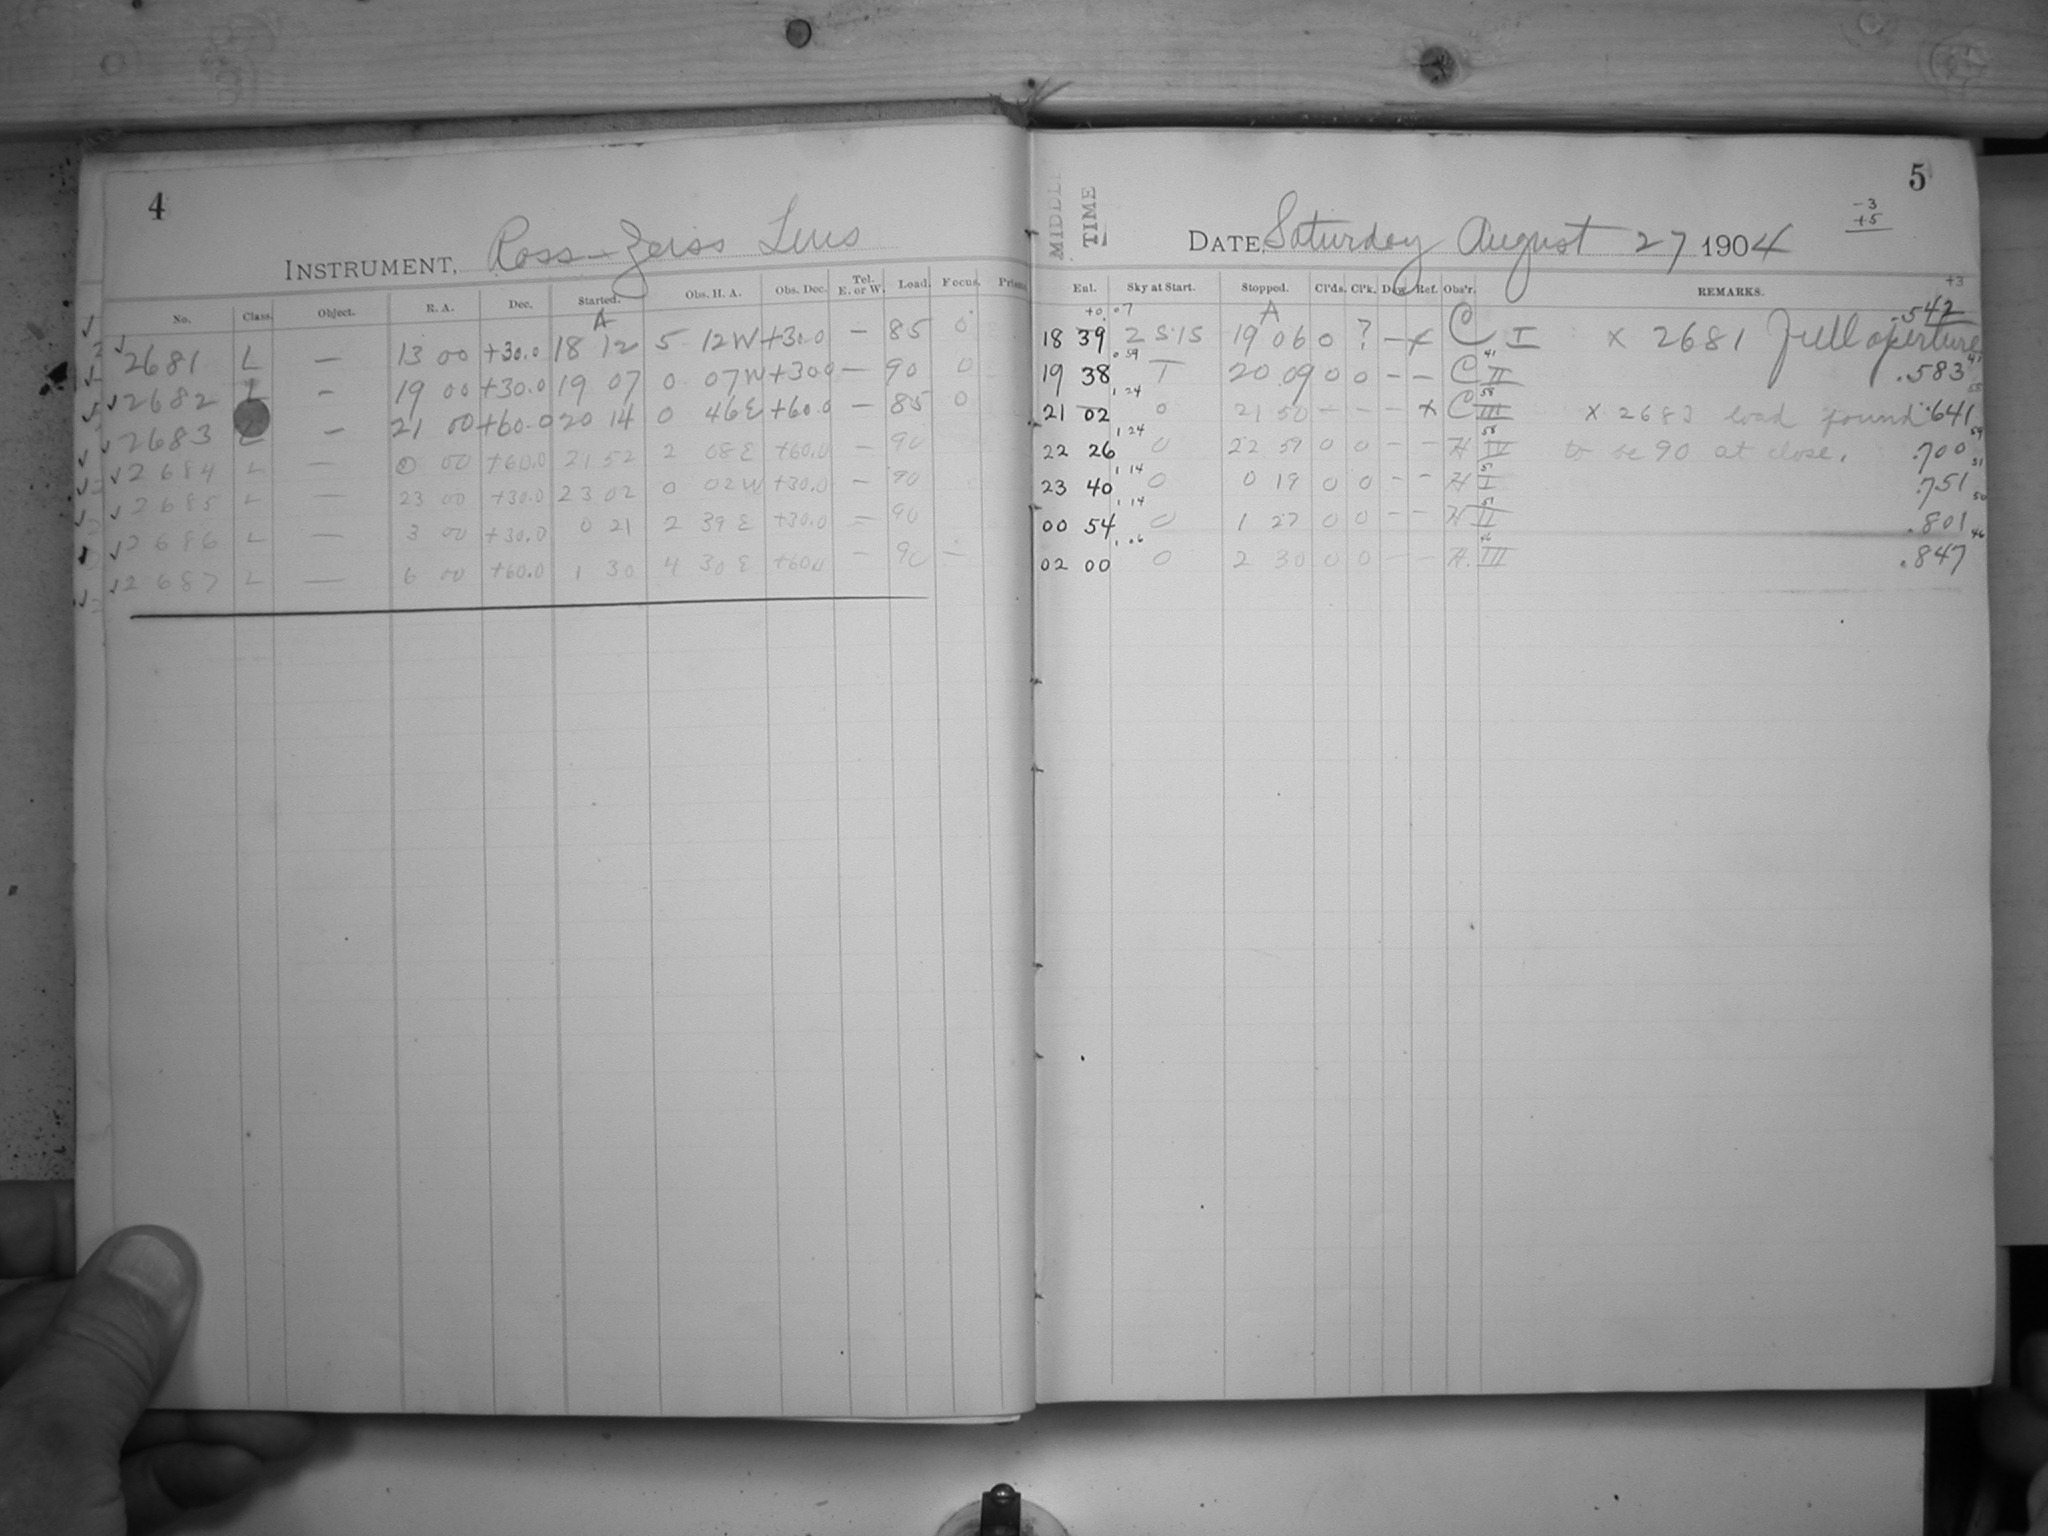 4
INSTRUMENT, Ross-Zeiss Lens
No. Class. Object. R. A. Dec. Started. Obs. H. A. Obs. Dec. Tel. E. or W. Load. Focus.
A
2681 L — 13 00 +30.0 18 12 5 12W +30.0 — 85 0
2682 L — 19 00 +30.0 19 07 0 07W +30.0 — 90 0
2683 — 21 00 +60.0 20 14 0 46E +60.0 — 85 0
2684 L — 0 00 +60.0 21 52 2 08E +60.0 — 90
2685 L — 23 00 +30.0 23 02 0 02W +30.0 — 90
2686 L — 3 00 +30.0 0 21 2 39E +30.0 — 90
2687 L — 6 00 +60.0 1 30 4 30E +60.0 — 90 —
5
-3
+5
MIDDLE
TIME
DATE, Saturday August 27 1904
+3
Ent. Sky at Start. Stopped. Cl'ds. Cl'k. Dew. Ref. Obs'r. REMARKS.
+0 07 A .542
18 39 2 S 15 19 06 0 ? — x C I x 2681 Full aperture
0 59 41 41
19 38 T 20 09 0 0 — — C II .583
1 24 58
21 02 0 21 50 — — — x C III x 2683 load found .641
1 24 58 59
22 26 0 22 59 0 0 — — H IV to be 90 at close. .700
1 14 51 51
23 40 0 0 19 0 0 — — H I .751
1 14 51 50
00 54 0 1 27 0 0 — — H II .801
1 06 46 46
02 00 0 2 30 0 0 — — H. III .847